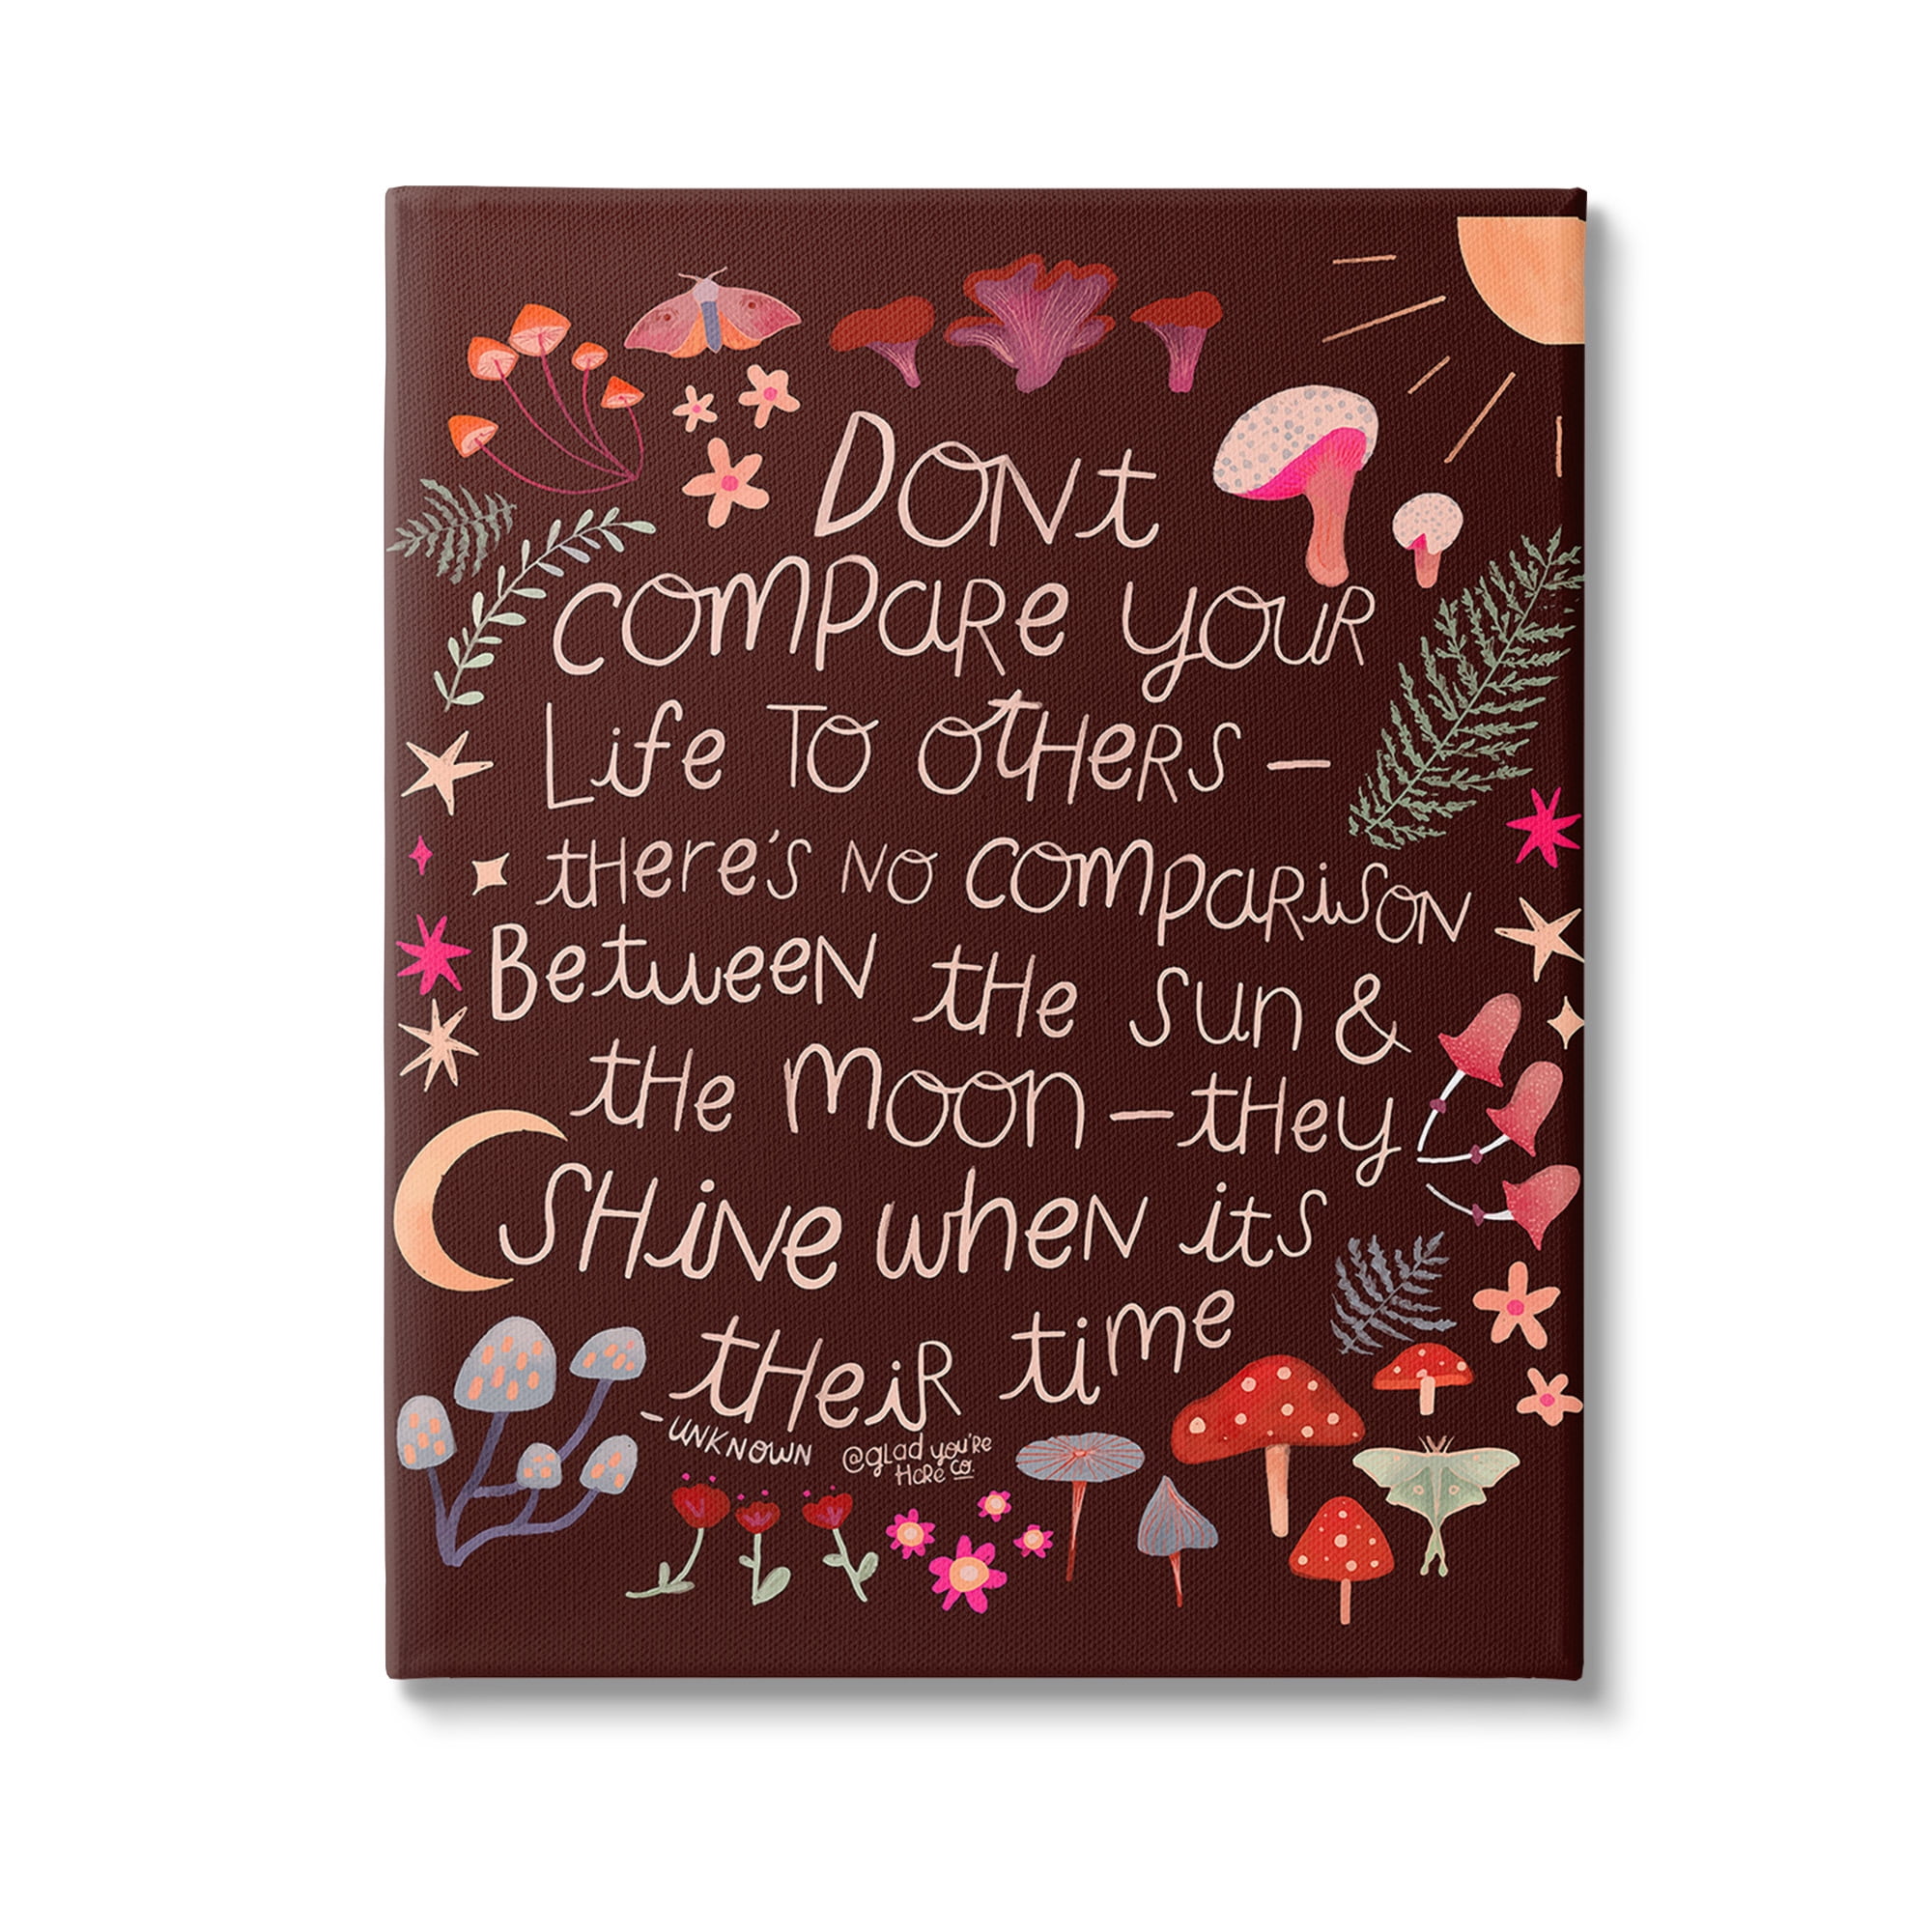 DONt
COMPARe YOUR
Life TO OtHeRS –
tHere's NO COMPARiSON
BetweeN tHe Sun &
tHe MOON – tHey
SHiNe wheN itS
tHeiR time
- UNKNOWN @glad you're
Here co.